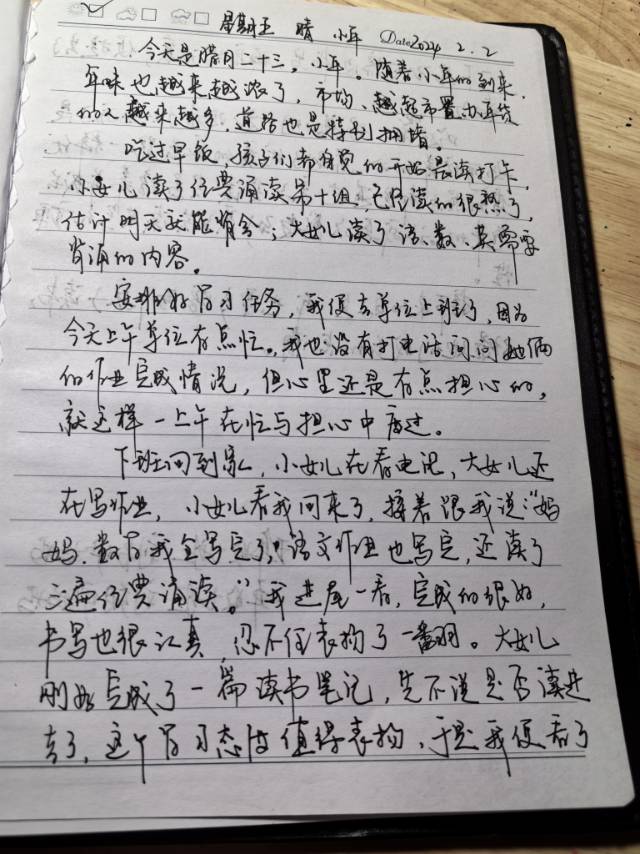 星期五 晴 小年 Date 2024 2.2
今天是腊月二十三,小年。随着小年的到来,
年味也越来越浓了,市场、超市置办年货
的人越来越多,道路也是特别拥堵。
吃过早饭,孩子们都自觉的开始晨读打卡,
小女儿读了经典诵读第十组,已经读的很熟了,
估计明天就能背会;大女儿读了语、数、英需要
背诵的内容。
安排好学习任务,我便去单位上班了,因为
今天上午单位有点忙。我也没有打电话问问她俩
的作业完成情况,但心里还是有点担心的,
就这样一上午在忙与担心中度过。
下班回到家,小女儿在看电视,大女儿还
在写作业,小女儿看我回来了,接着跟我说:“妈
妈,数学我全写完了,语文作业也写完,还读了
三遍经典诵读。”我进屋一看,完成的很好,
书写也很认真,忍不住表扬了一翻。大女儿
刚好完成了一篇读书笔记,先不说是否读进
去了,这个学习态度值得表扬,于是我便看了